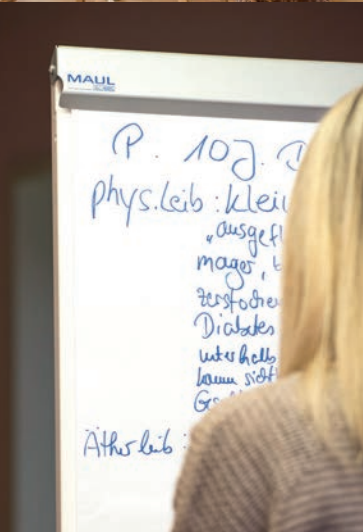 MAUL
P. 10J. D
phys.Leib: klei
„ausgefl
mager, b
zerstochen
Diabetes
unterhalb
kaum sicht
Ges
Ätherleib: